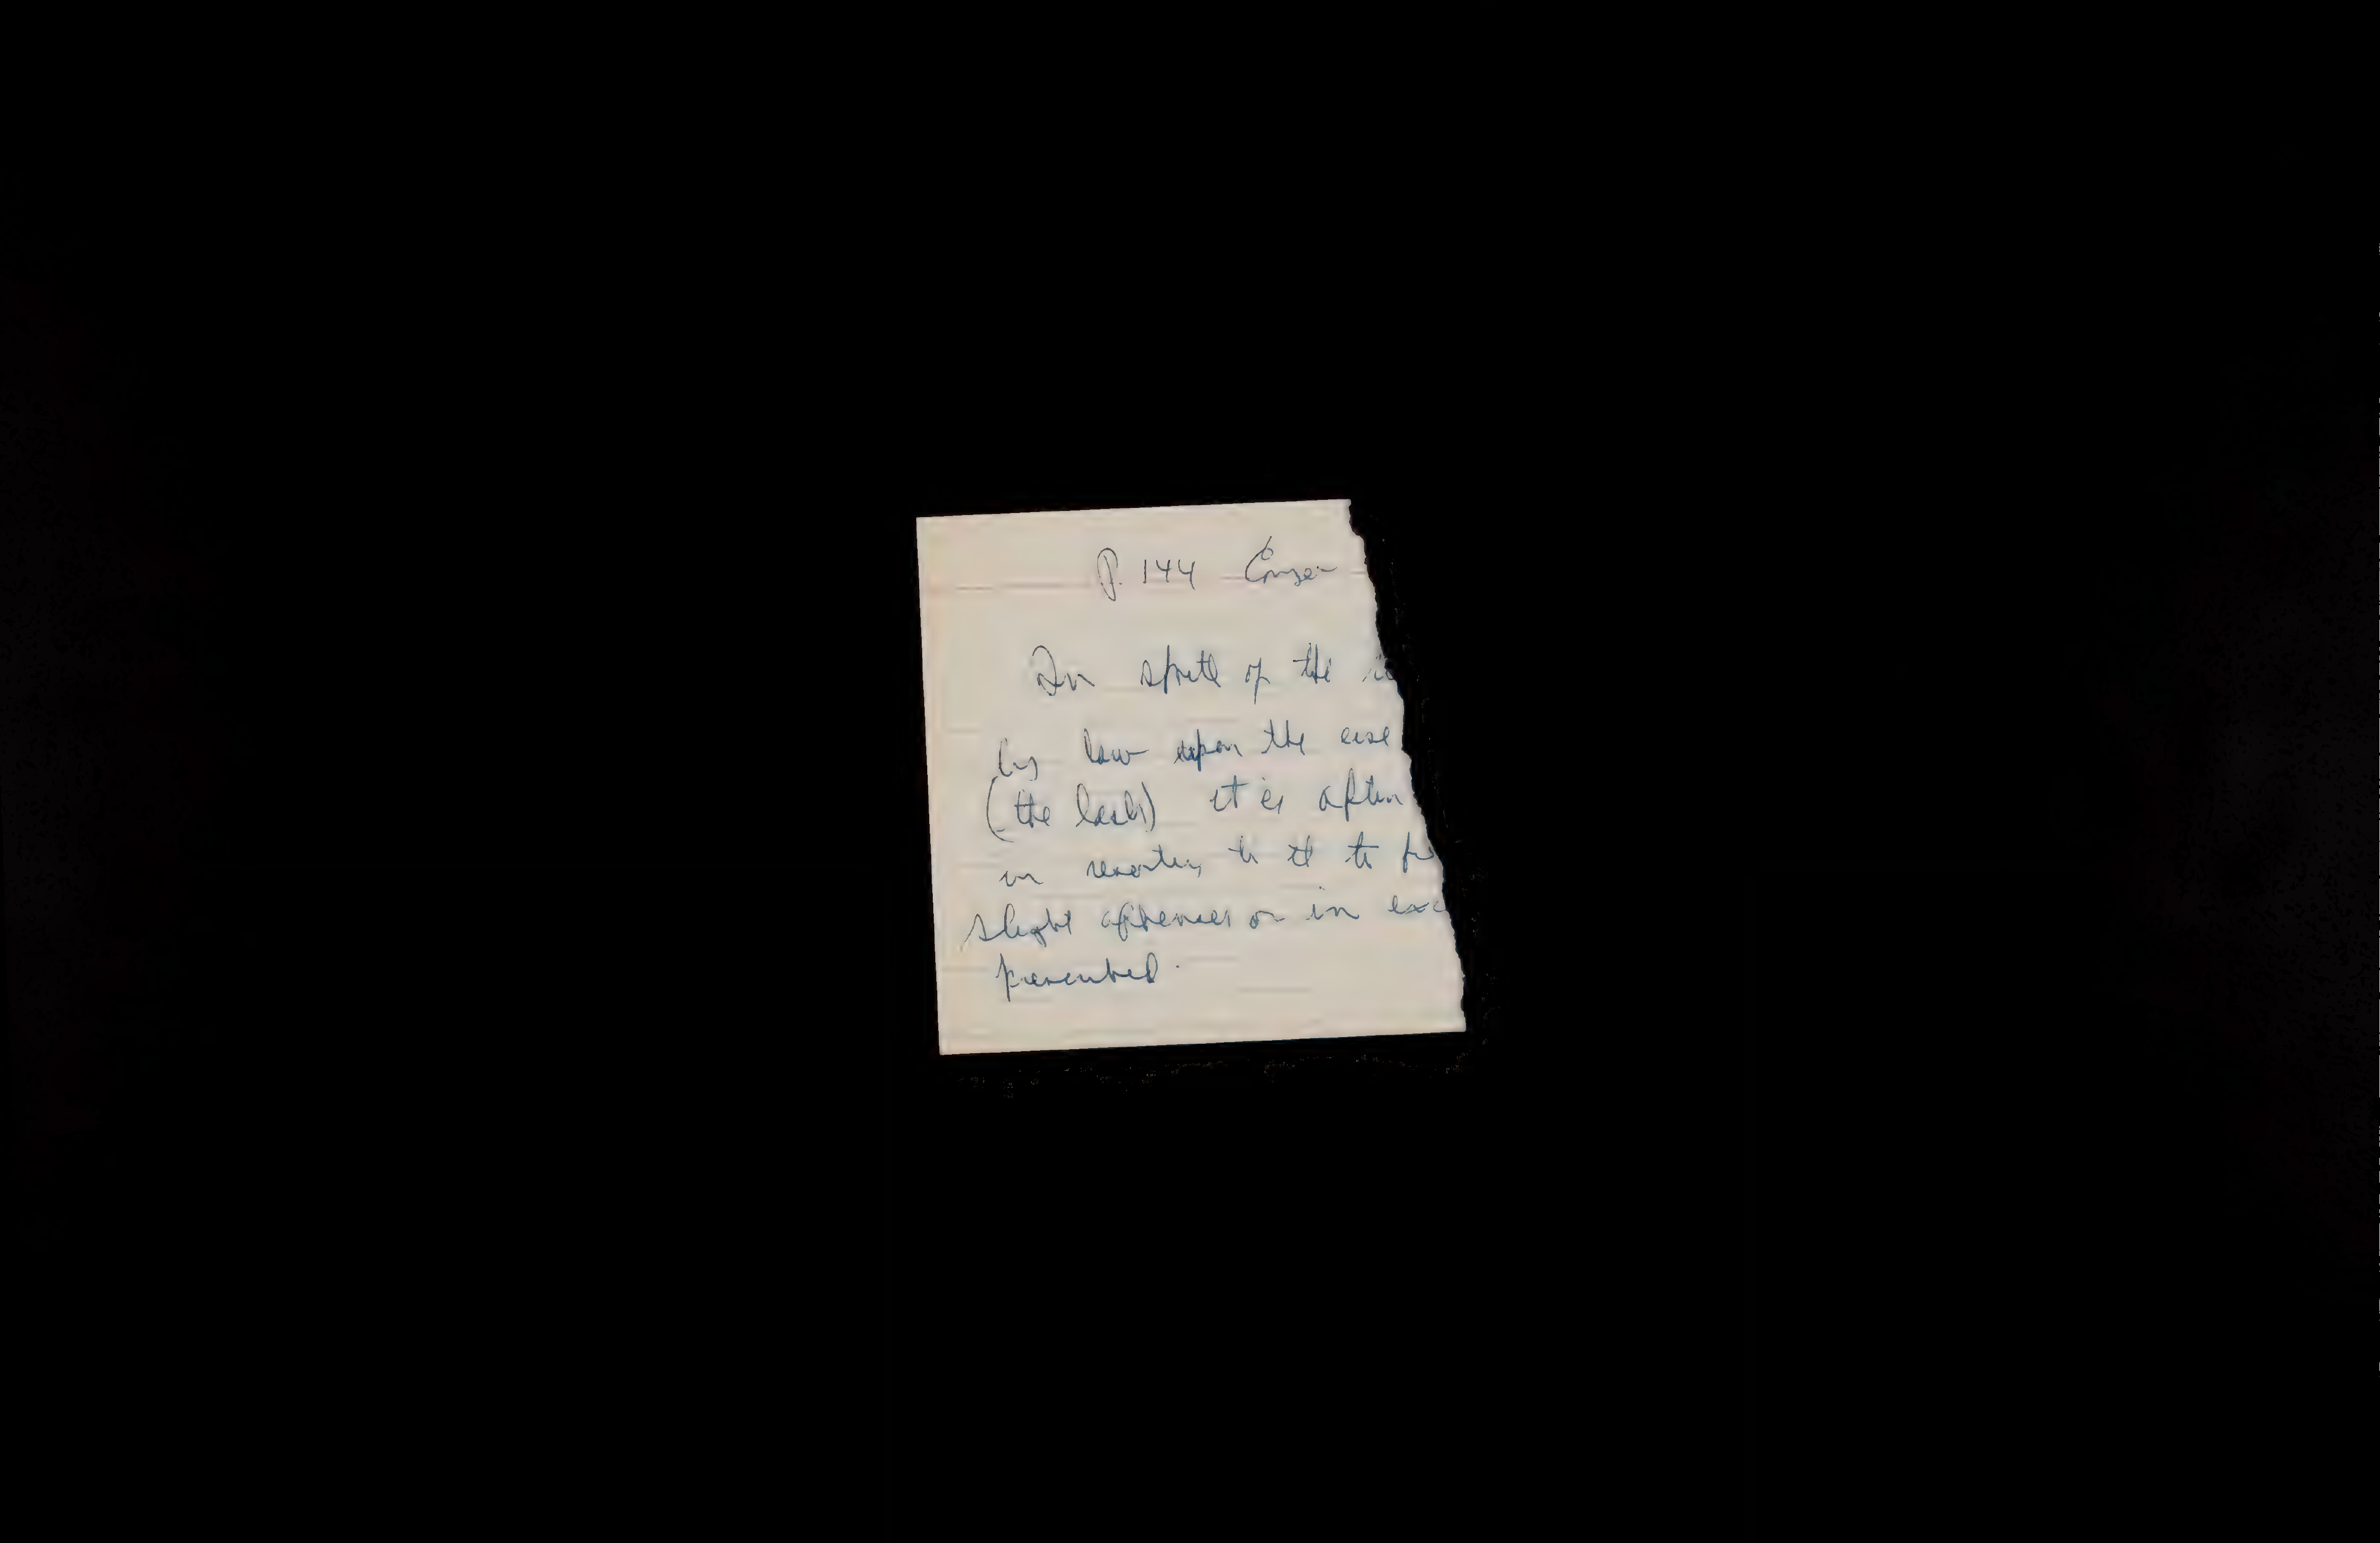 P. 144 Conse
In spite of the i
by law upon the use
(the lash) it is often
in resorting to it to pu
slight offenses or in exc
prescribed.